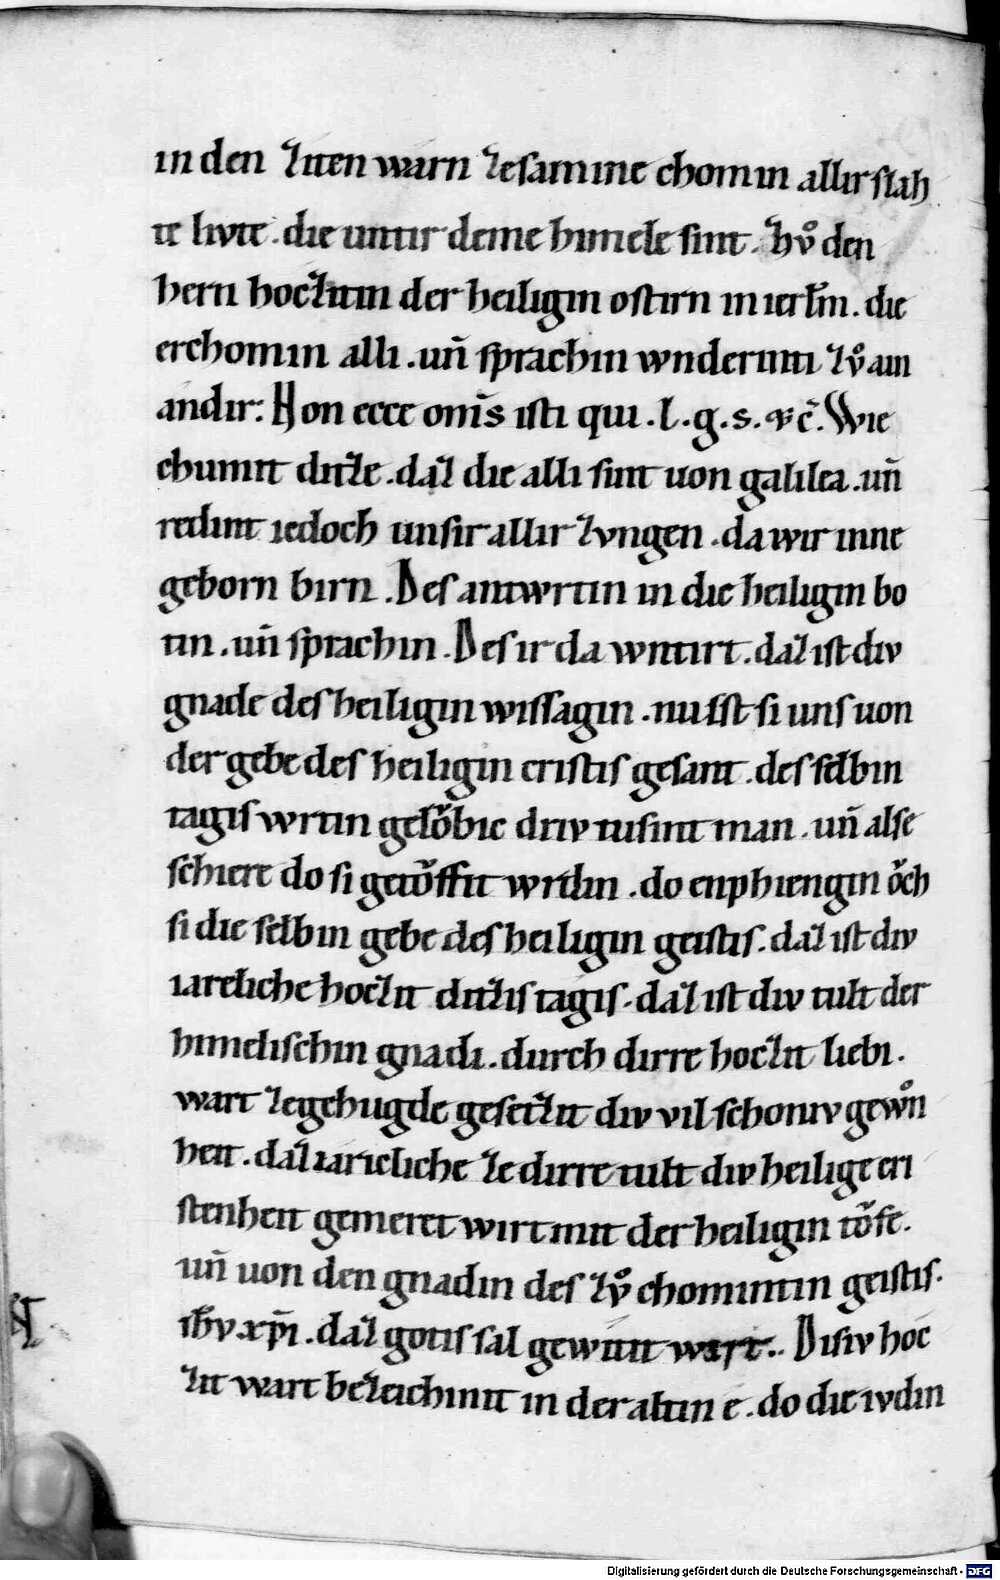 in den ziten warn zesamine chomin allir slah
te livte . die untir deme himele sint . zvͦ den
hern hoczitin der heiligin ostirn in ierl̄m . die
erchomin alli . un̄ sprachin wnderinti zvͦ ain
andir: Non ecce om̄s isti qui . l . g . s . ⁊ c̄ . Wie
chumit ditze . daz die alli sint uon galilea . un̄
redint iedoch unsir allir zvngen . da wir inne
geborn birn . Des antwrtin in die heiligin bo
tin . un̄ sprachin . Des ir da wntirt . daz ist div
gnade des heiligin wissagin . nu ist si uns uon
der gebe des heiligin cristis gesant . des selbin
tagis wrtin geloͮbic driv tusint man . un̄ alse
schiere do si getoͮffit wrdin . do enphiengin oͮch
si die selbin gebe des heiligin geistis . daz ist div
iareliche hoczit ditzis tagis . daz ist div tult der
himelischin gnadi . durch dirre hoczit liebi .
wart zegehugde gesetzit div vil schoniv gewoͮn
heit . daz iaricliche ze dirre tult div heilige cri
stenheit gemeret wirt mit der heiligin toͮfe .
un̄ uon den gnadin des zvͦ chomintin geistis .
ih̄v xp̄i . daz gotis sal gewitit wart . Disiv hoc
zit wart bezeichinit in der altin e . do die ivdin
Digitalisierung gefördert durch die Deutsche Forschungsgemeinschaft - DFG